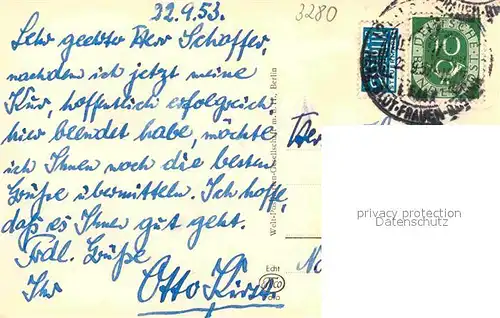 22.9.53.
3280
Sehr geehrter Herr Schaffer,
nachdem ich jetzt meine
Kur, hoffentlich erfolgreich
hier beendet habe, möchte
ich Ihnen noch die besten
Grüße übermitteln. Ich hoffe,
daß es Ihnen gut geht.
Frdl. Grüße
Ihr Otto
Berlin
Echt
Foto
DEUTSCHE
10
privacy protection
Datenschutz